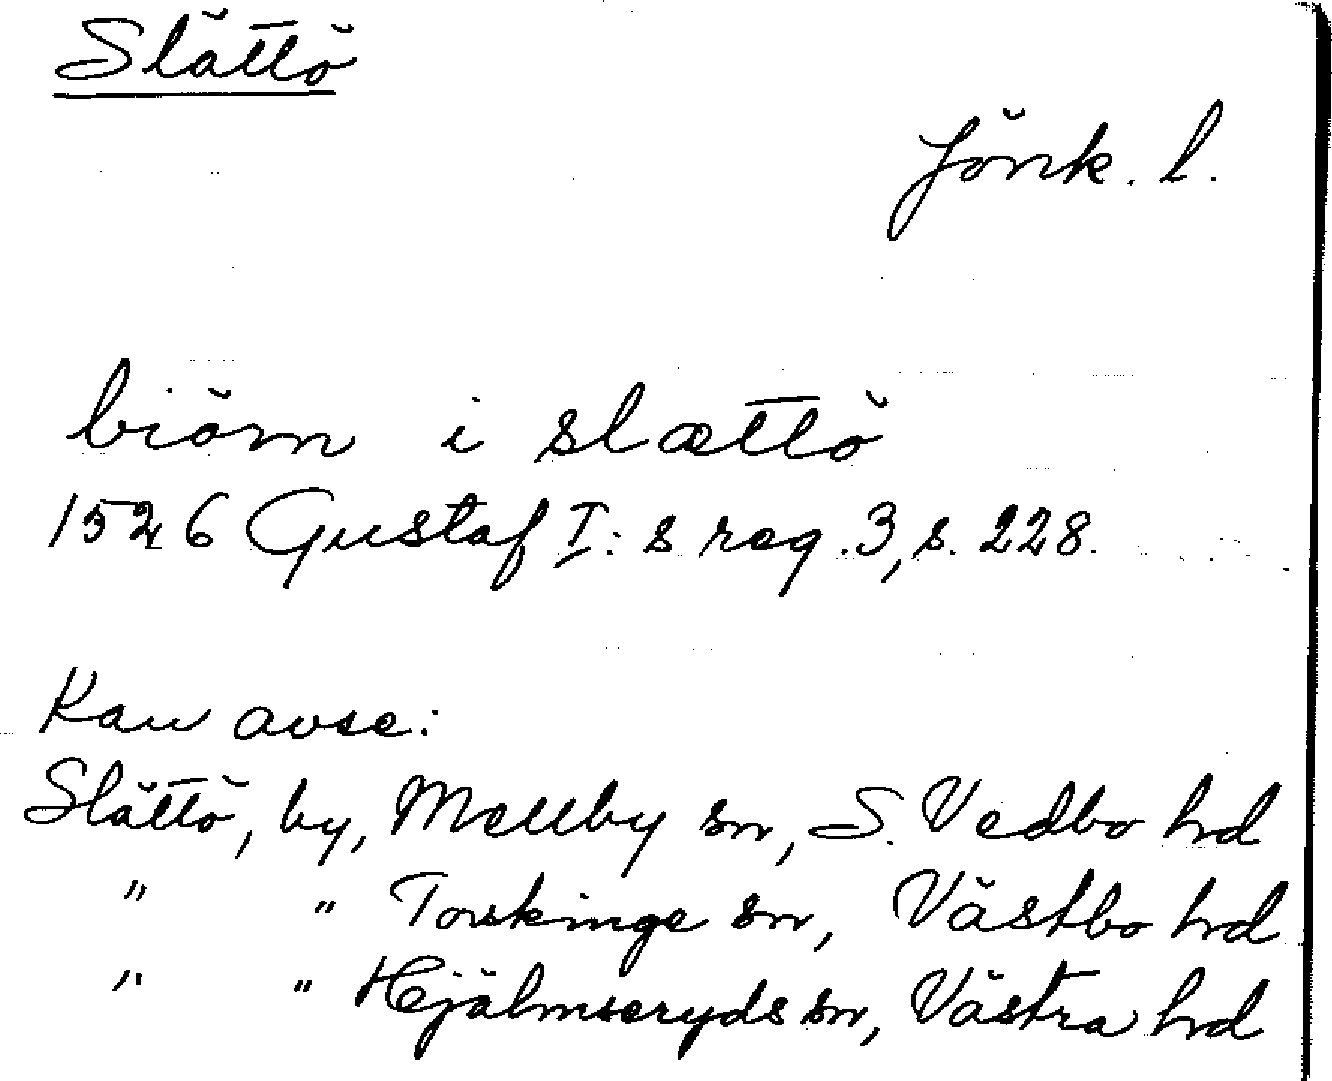 Slättö
Jönk. l.
biörn i slættö
1526 Gustaf I:s reg. 3, s. 228.
Kan avse:
Slättö, by, Mellby sn, S. Vedbo hd
" " Torskinge sn, Västbo hd
" " Hjälmseryds sn, Västra hd